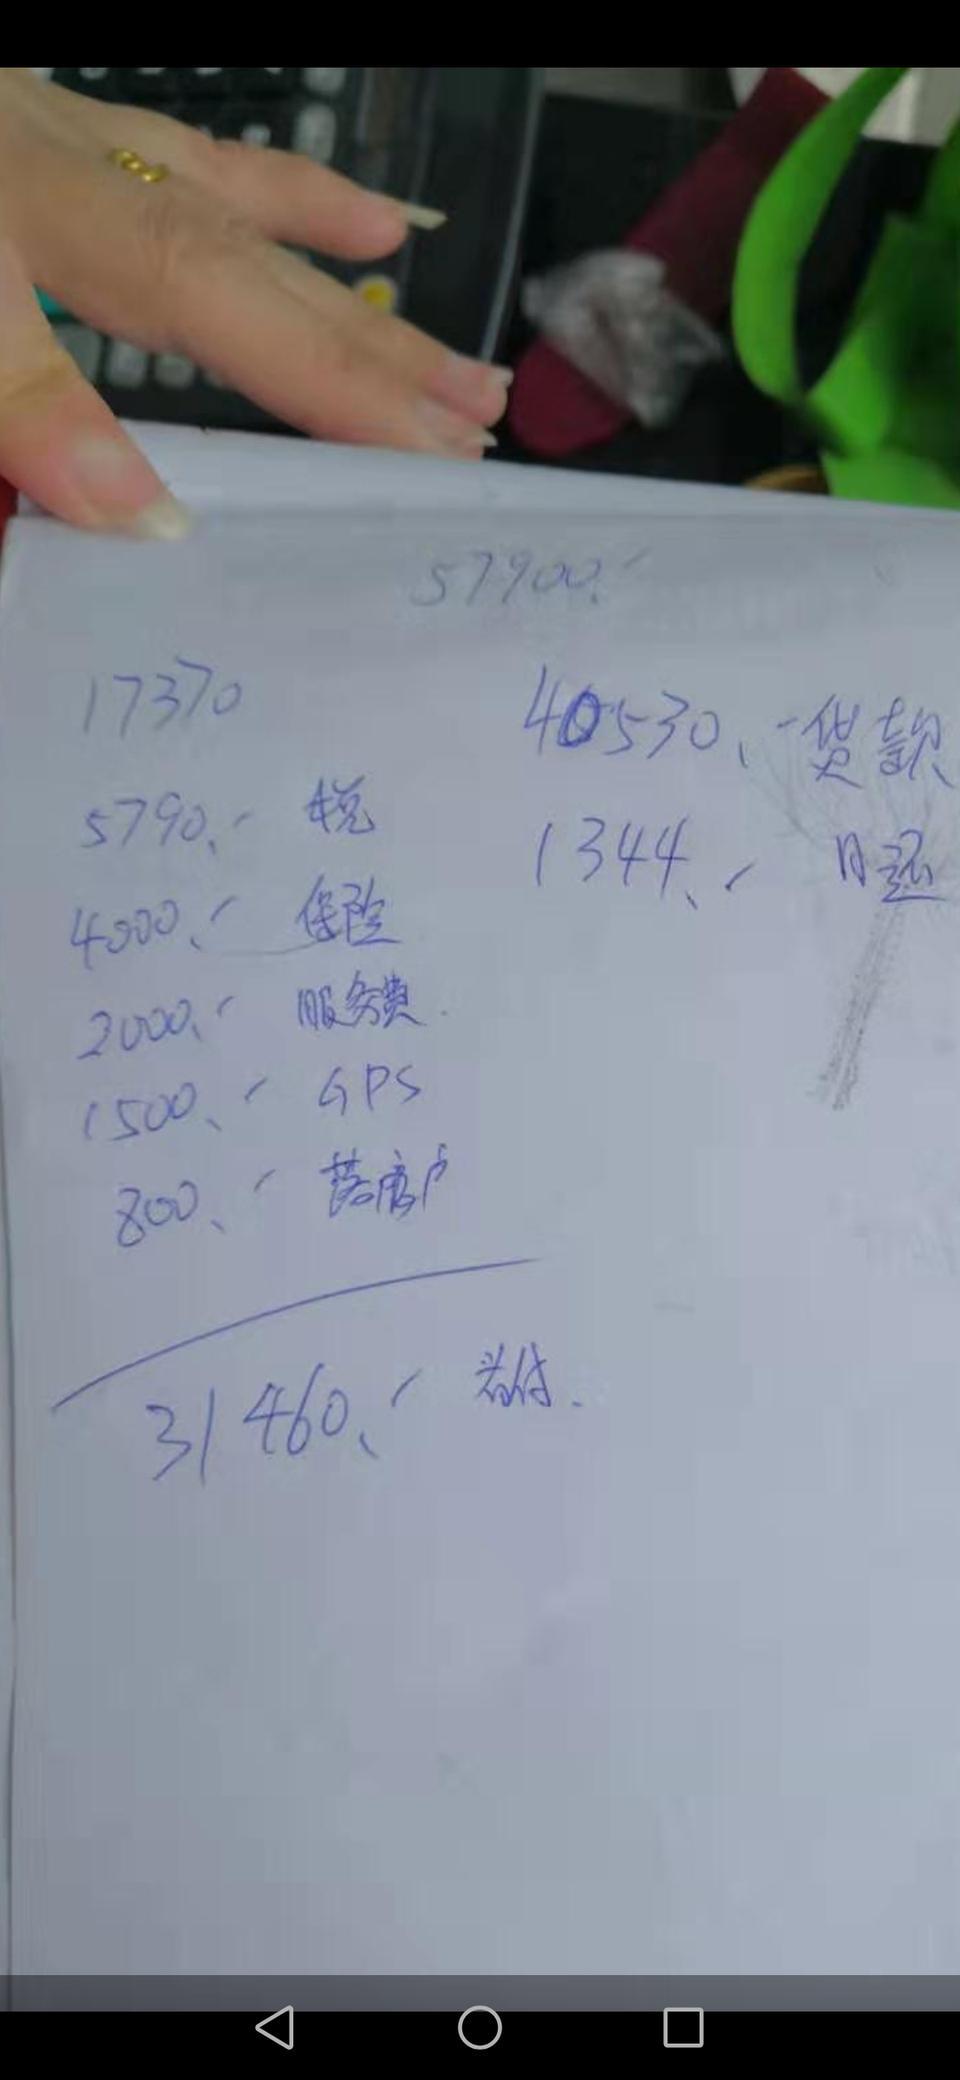 57900.
17370
5790.- 税
4000.- 保险
2000.- 服务费.
1500.- GPS
800.- 落户
31460.- 首付.
40530.- 贷款
1344.- 月还